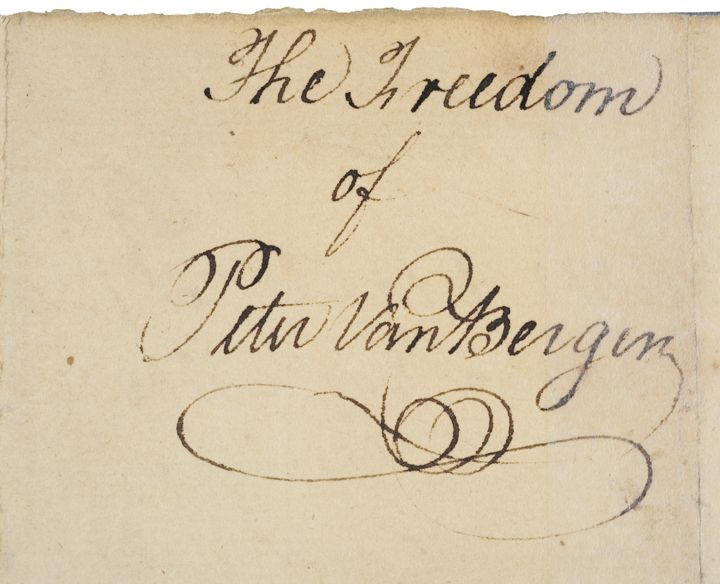 The Freedom
of
Peter Van Bergen